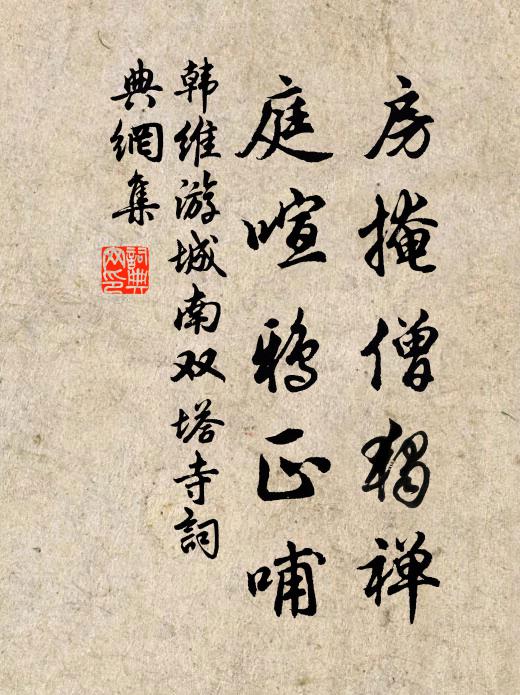 房掩僧独禅
庭喧鸦正哺
韩维游城南双塔寺詞
典網集
詞典
文印